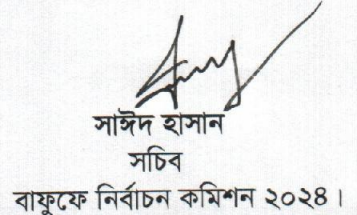 সাঈদ হাসান
সচিব
বাফুফে নির্বাচন কমিশন ২০২৪।